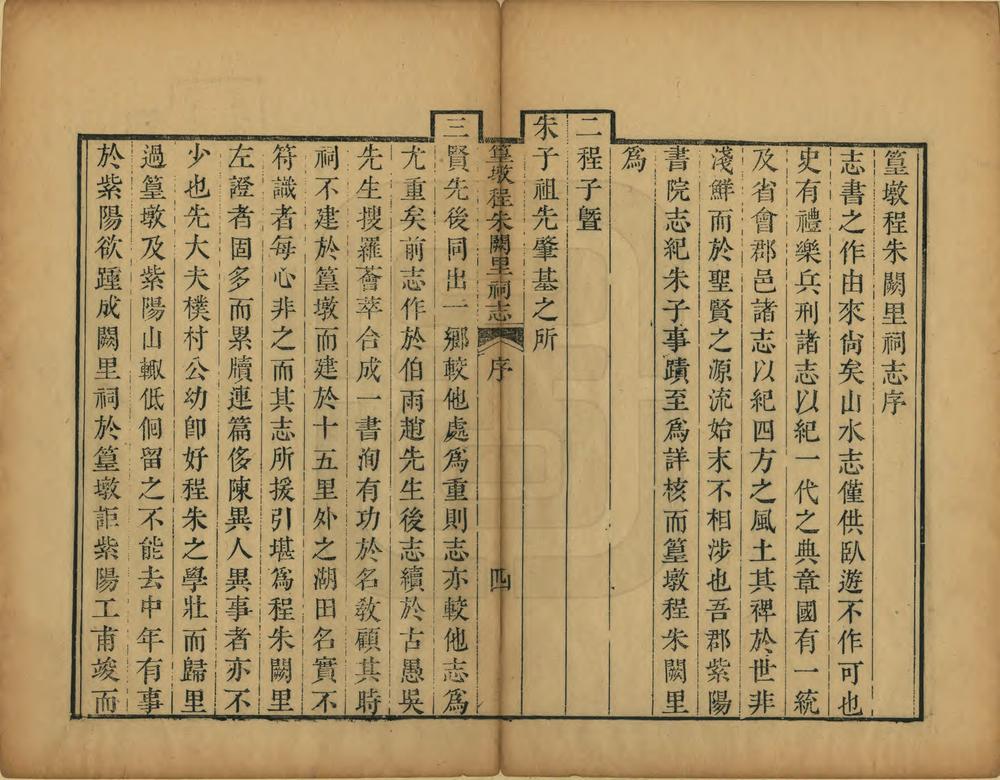 篁墩程朱闕里祠志序
志書之作由來尙矣山水志僅供臥遊不作可也
史有禮樂兵刑諸志以紀一代之典章國有一統
及省會郡邑諸志以紀四方之風土其裨於世非
淺鮮而於聖賢之源流始末不相涉也吾郡紫陽
書院志紀朱子事蹟至爲詳核而篁墩程朱闕里
爲
二程子暨
朱子祖先肇基之所
篁墩程朱闕里祠志 序 四
三賢先後同出一鄉較他處爲重則志亦較他志爲
尤重矣前志作於伯雨趙先生後志續於古愚吳
先生搜羅薈萃合成一書洵有功於名敎顧其時
祠不建於篁墩而建於十五里外之湖田名實不
符識者每心非之而其志所援引堪爲程朱闕里
左證者固多而累牘連篇侈陳異人異事者亦不
少也先大夫樸村公幼卽好程朱之學壯而歸里
過篁墩及紫陽山輙低佪留之不能去中年有事
於紫陽欲踵成闕里祠於篁墩詎紫陽工甫竣而